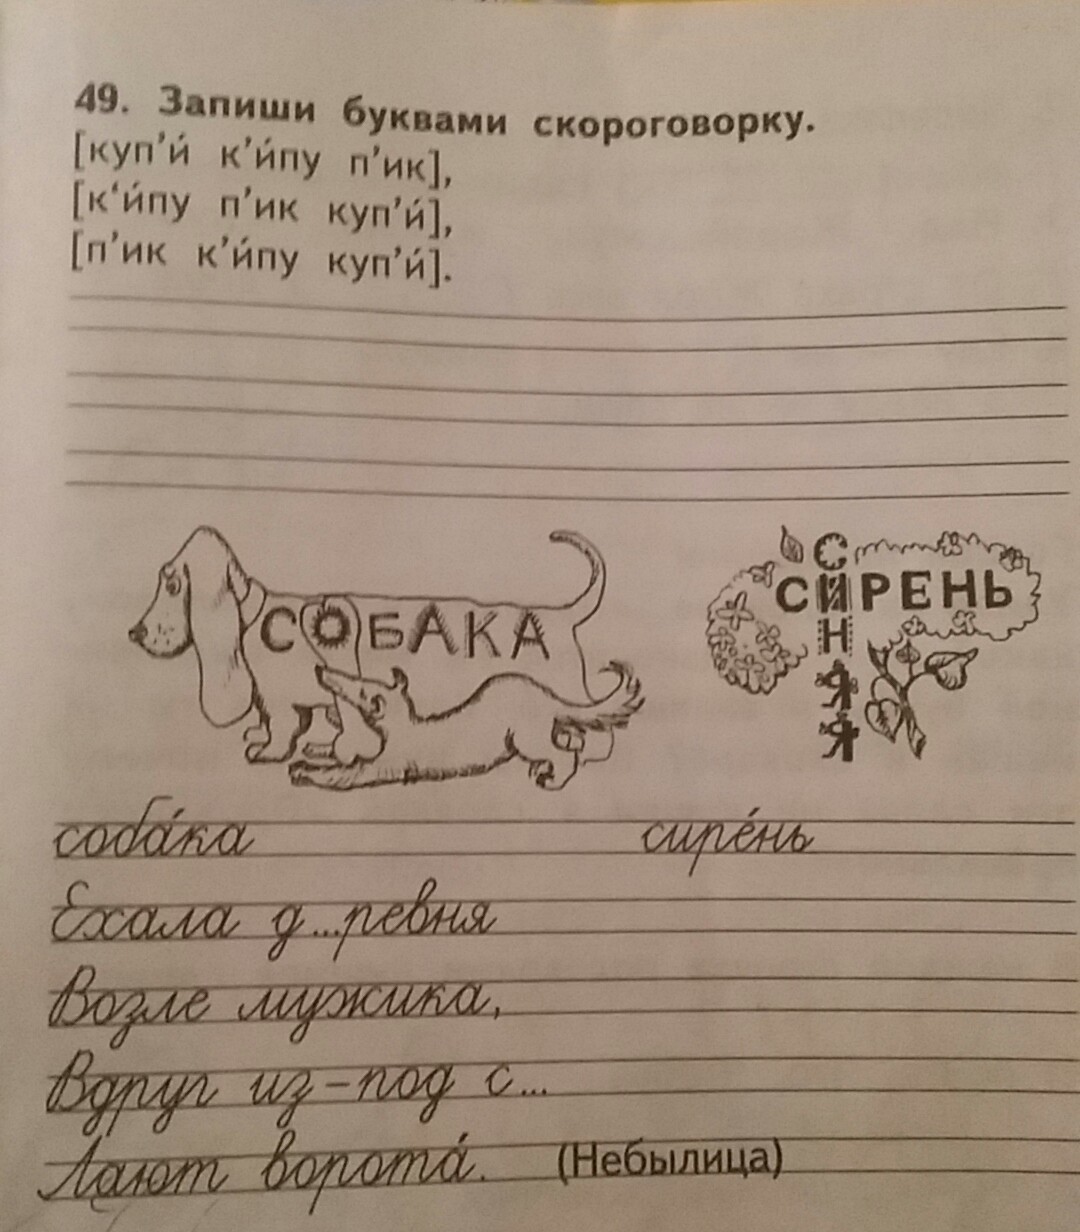 49. Запиши буквами скороговорку.
[куп’и́ к’и́пу п’ик],
[к‘и́пу п’ик куп’и́],
[п’ик к’и́пу куп’и́].
СОБАКА
СИРЕНЬ
СИНЯЯ
соба́ка сире́нь
Ехала д...ревня
Возле мужика,
Вдруг из-под с...
Лают ворота́. (Небылица)